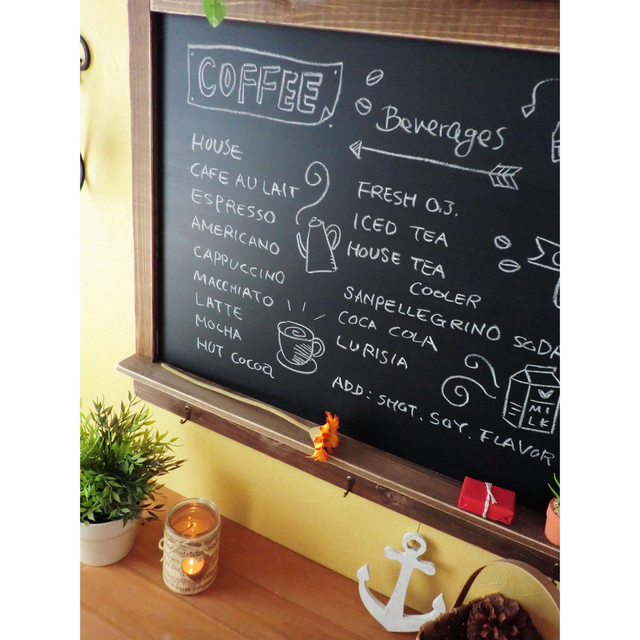 COFFEE
HOUSE
CAFE AU LAIT
ESPRESSO
AMERICANO
CAPPUCCINO
MACCHIATO
LATTE
MOCHA
HOT COCOA
Beverages
FRESH O.J.
ICED TEA
HOUSE TEA
COOLER
SANPELLEGRINO SODA
COCA COLA
LURISIA
ADD: SHOT. SOY. FLAVOR
MILK